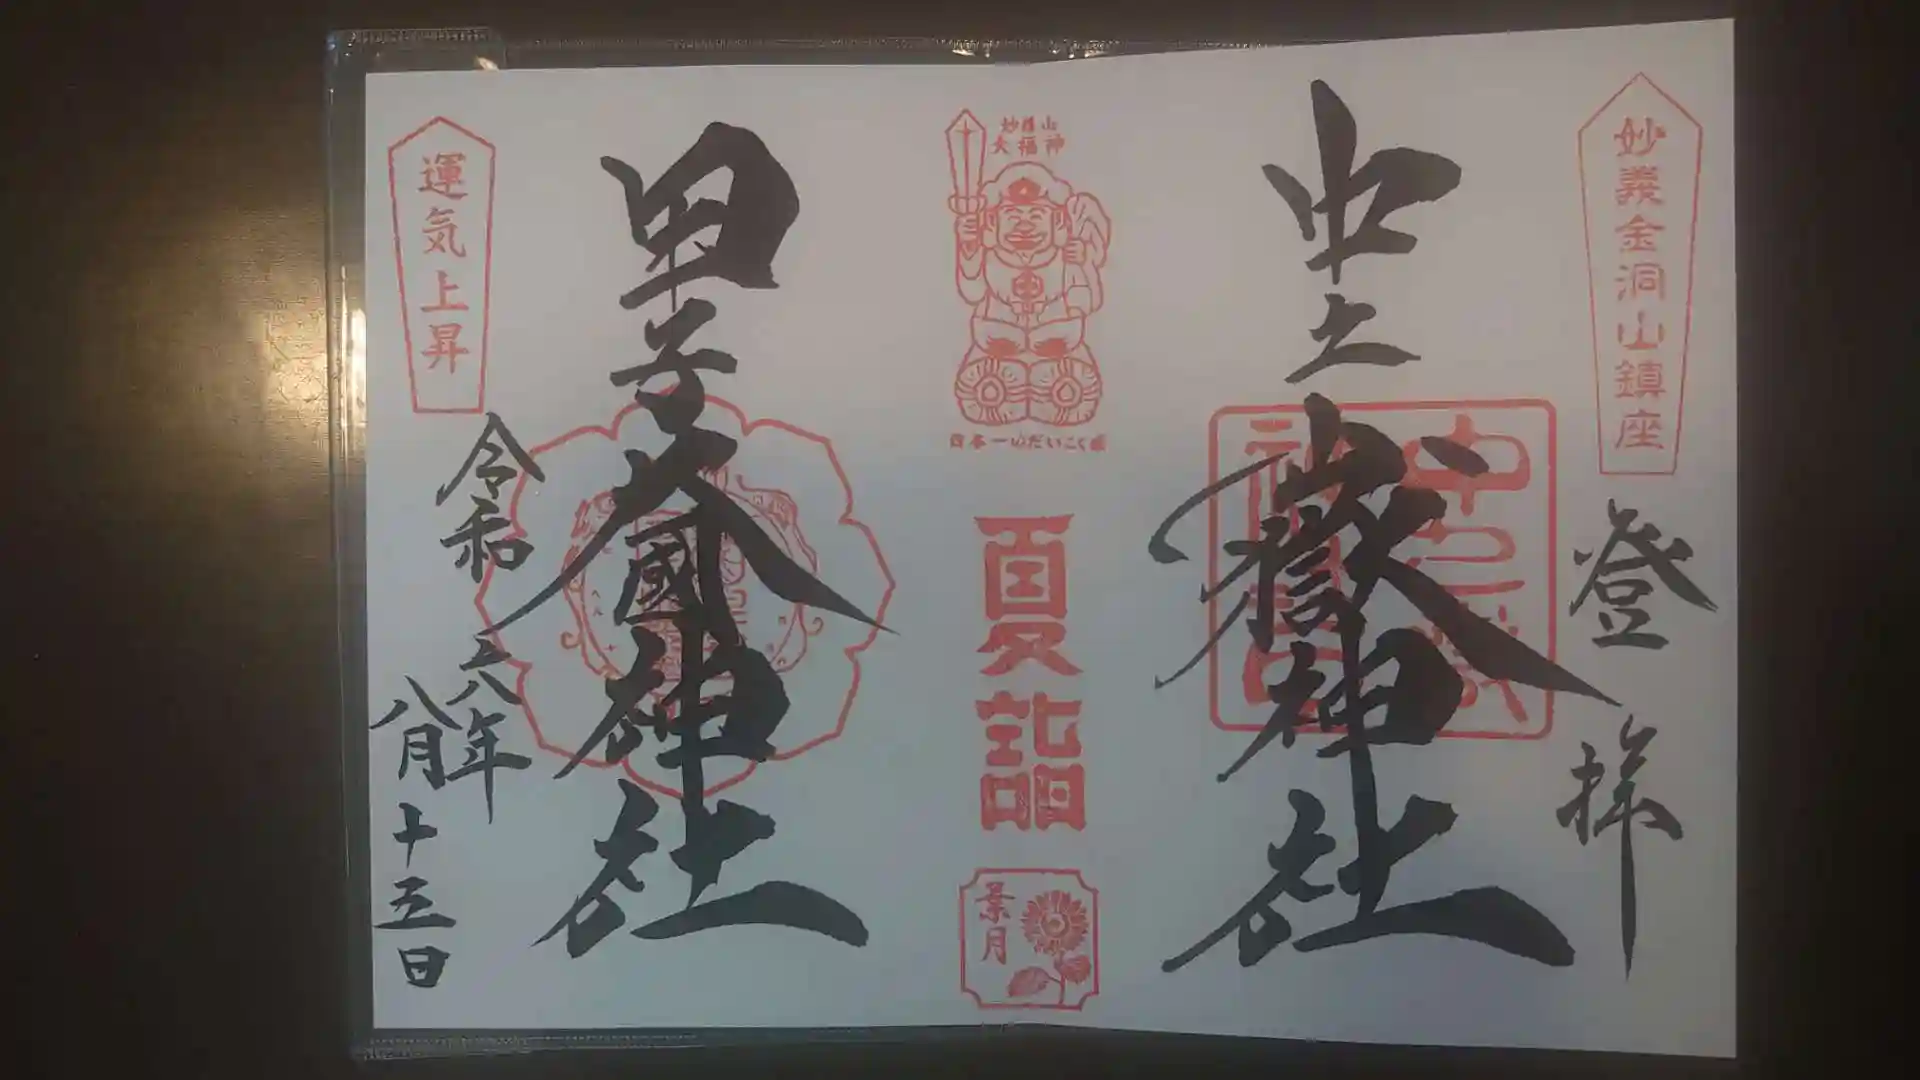 妙義金洞山鎮座
登拝
中之嶽神社
妙義山
大福神
日本一のだいこく様
夏詣
葉月
甲子大國神社
運気上昇
令和六年
八月十三日